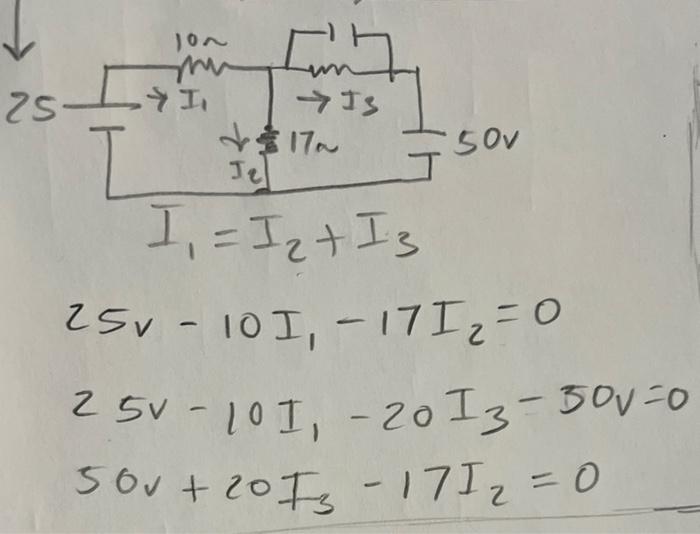 10Ω
25 → I₁ → I₃
↓ I₂ 17Ω 50V
I₁ = I₂ + I₃
25v - 10I₁ - 17I₂ = 0
25v - 10I₁ - 20I₃ - 50v = 0
50v + 20I₃ - 17I₂ = 0